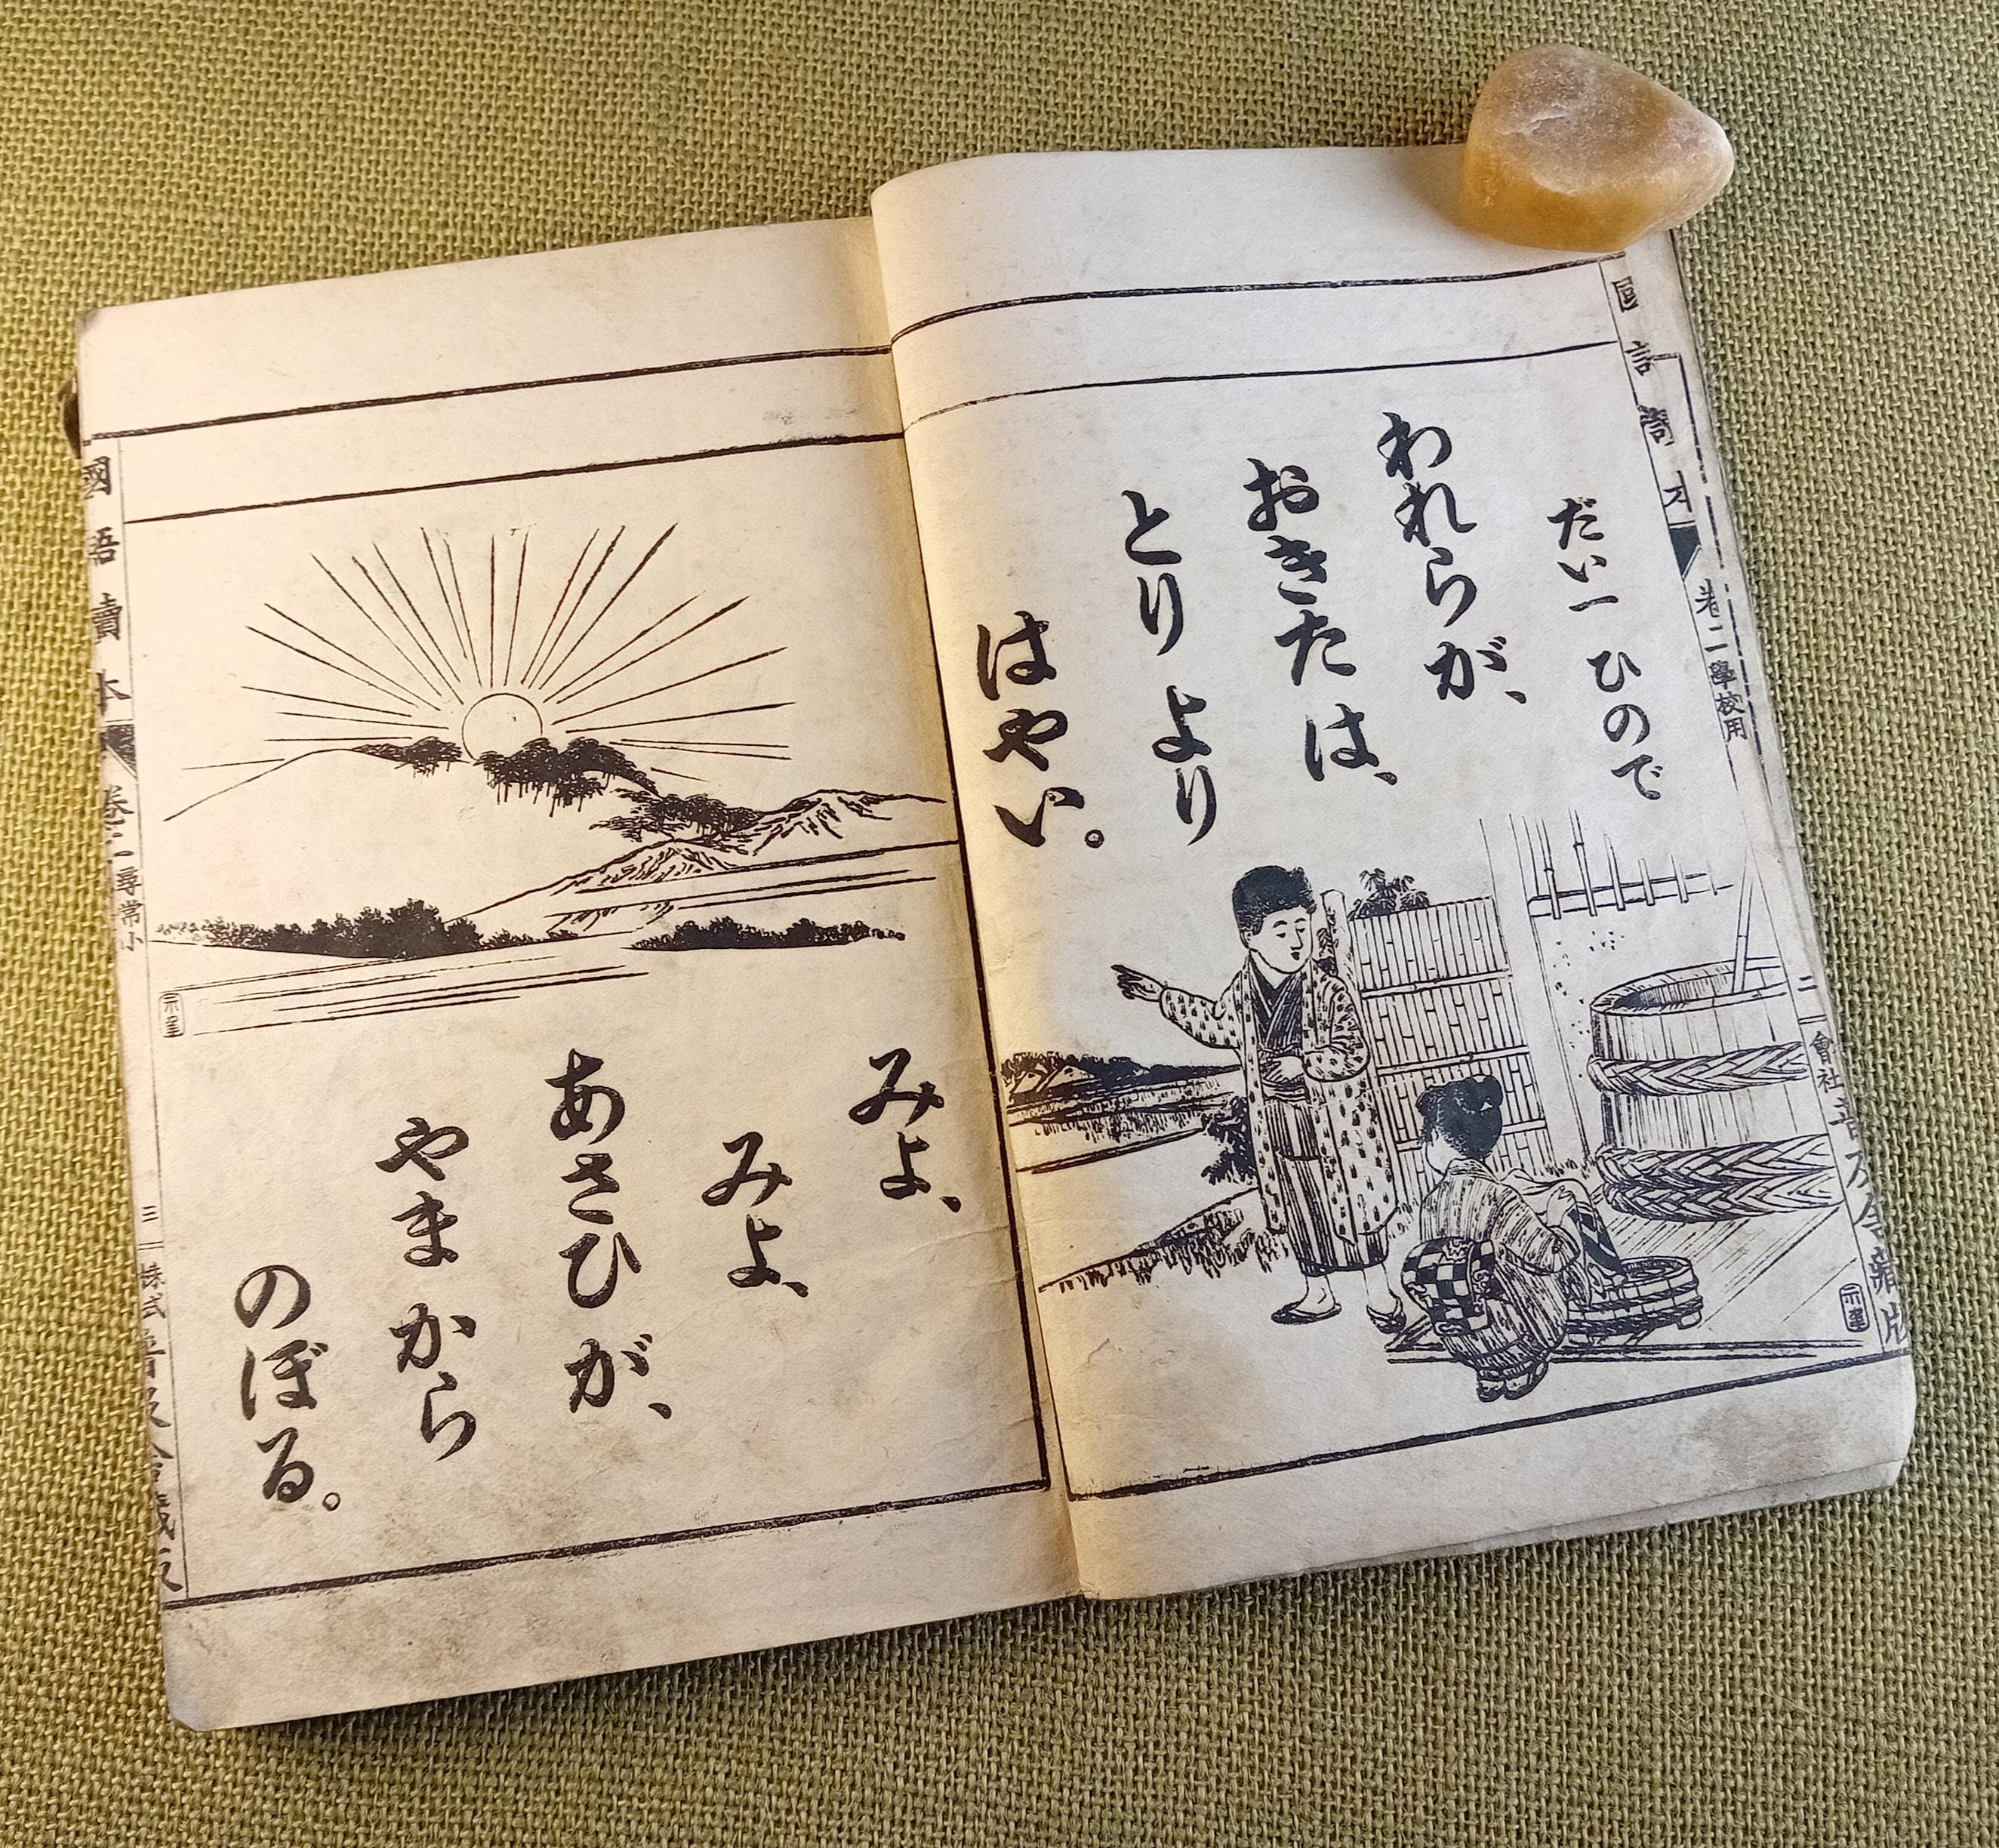 だい一 ひので
われらが、
おきたは、
とり より
はやい。
みよ、
みよ、
あさひが、
やま から
のぼる。
國語讀本
巻二
學校用
二
會社
國語讀本
巻二
尋常小
三
株式